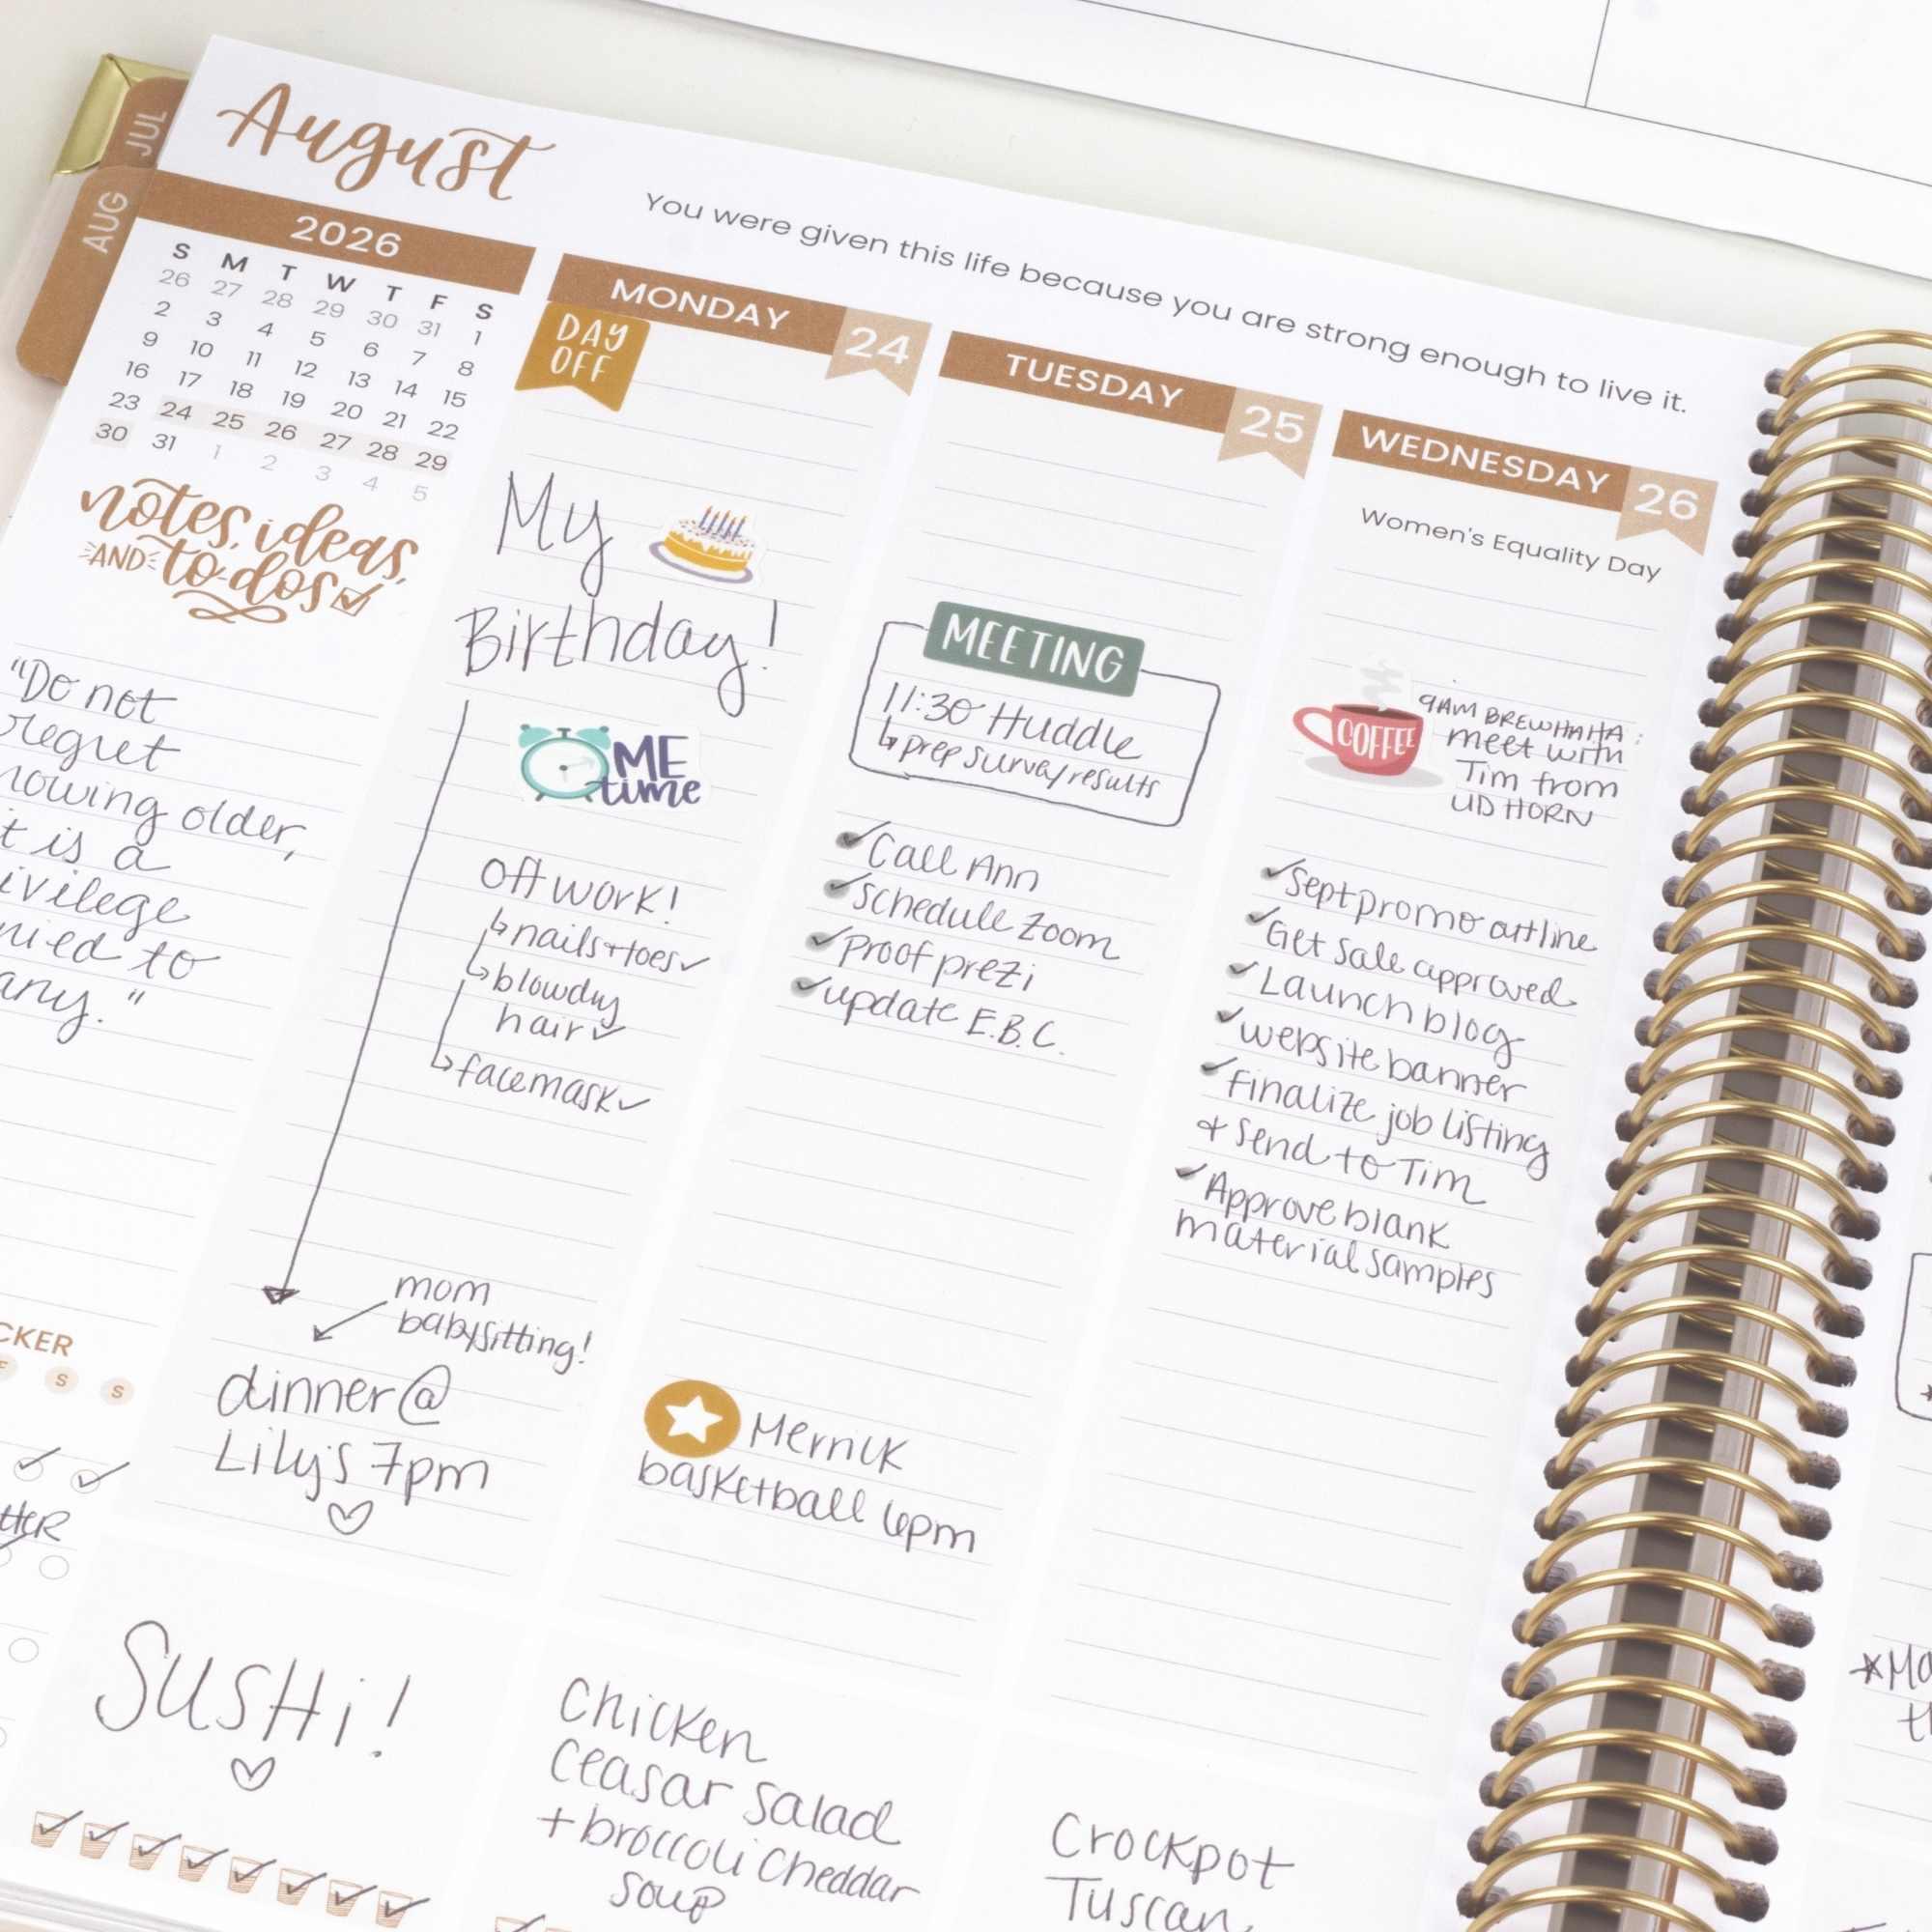 JUL
AUG
August
You were given this life because you are strong enough to live it.
2026
S M T W T F S
26 27 28 29 30 31 1
2 3 4 5 6 7 8
9 10 11 12 13 14 15
16 17 18 19 20 21 22
23 24 25 26 27 28 29
30 31 1 2 3 4 5
notes, ideas,
AND to-dos
"Do not
regret
older,
is a
to
"
CKER
S S
MONDAY 24
DAY
OFF
My
Birthday!
ME
time
Off work!
nails + toes
blowdry
hair
facemask
mom
babysitting!
dinner @
Lily's 7pm
SUSHi!
TUESDAY 25
MEETING
11:30 Huddle
prep survey results
Call Ann
Schedule Zoom
Proof prezi
update E.B.C.
basketball 6pm
Chicken
Ceasar Salad
+ broccoli Cheddar
soup
WEDNESDAY 26
Women's Equality Day
COFFEE
9AM BREWHAHA:
meet with
Tim from
UD HORN
Sept promo outline
Get Sale approved
Launch blog
website banner
Finalize job listing
+ Send to Tim
Approve blank
material samples
Crockpot
Tuscan